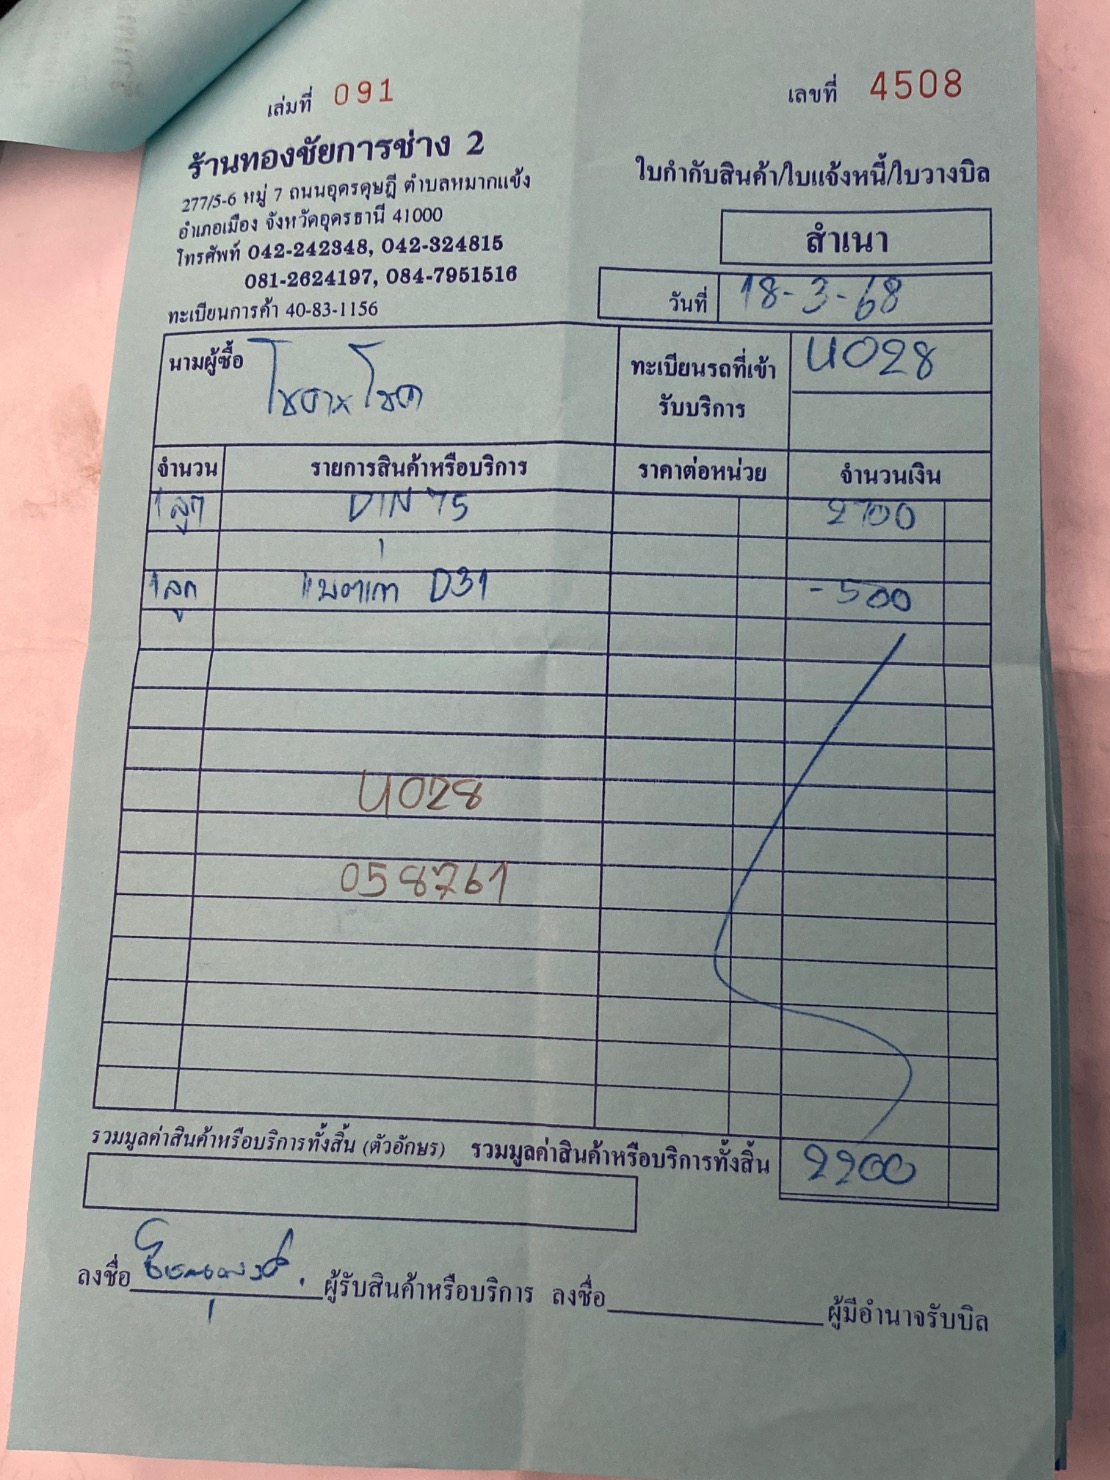 เล่มที่ 091
เลขที่ 4508
ร้านทองชัยการช่าง 2
277/5-6 หมู่ 7 ถนนอุดรดุษฎี ตำบลหมากแข้ง
อำเภอเมือง จังหวัดอุดรธานี 41000
โทรศัพท์ 042-242348, 042-324815
081-2624197, 084-7951516
ทะเบียนการค้า 40-83-1156
ใบกำกับสินค้า/ใบแจ้งหนี้/ใบวางบิล
สำเนา
วันที่ 18-3-68
นามผู้ซื้อ
ทะเบียนรถที่เข้ารับบริการ 4028
จำนวน รายการสินค้าหรือบริการ ราคาต่อหน่วย จำนวนเงิน
1 ลูก DIN 75 2700
1 ลูก แบตเก่า D31 -500
4028
058761
รวมมูลค่าสินค้าหรือบริการทั้งสิ้น (ตัวอักษร) รวมมูลค่าสินค้าหรือบริการทั้งสิ้น 2200
ลงชื่อ ผู้รับสินค้าหรือบริการ ลงชื่อ ผู้มีอำนาจรับบิล